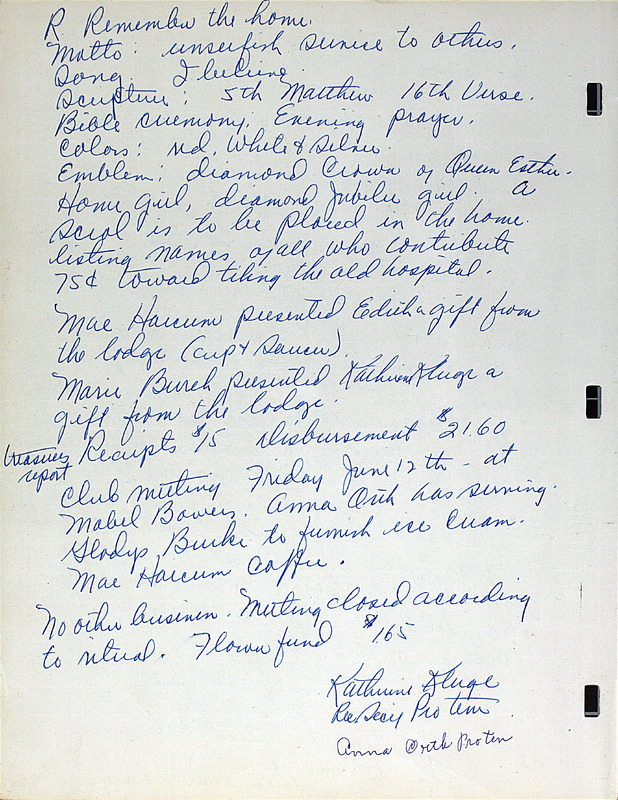 R. Remember the home.
Motto: unselfish service to others.
Song I believe.
Scripture: 5th Matthew 16th Verse.
Bible ceremony. Evening prayer.
Colors: red, White & Silver.
Emblem: diamond Crown of Queen Esther.
Home girl, diamond Jubilee girl. A
scrol is to be placed in the home.
listing names of all who contribute
75¢ toward tiling the old hospital.
Mae Harcum presented Edith a gift from
the lodge (cup & saucer).
Marie Burch presented Kathrine Kluge a
gift from the lodge.
treasurers report Receipts $15 Disbursement $21.60
Club meeting Friday June 12th - at
Mabel Bowers. Anna Orth has serving.
Gladys Burke to furnish ice cream.
Mae Harcum coffee.
No other business. Meeting closed according
to ritual. Flower fund $1.65
Kathrine Kluge
Rec Secy Pro tem
Anna Orth Protem